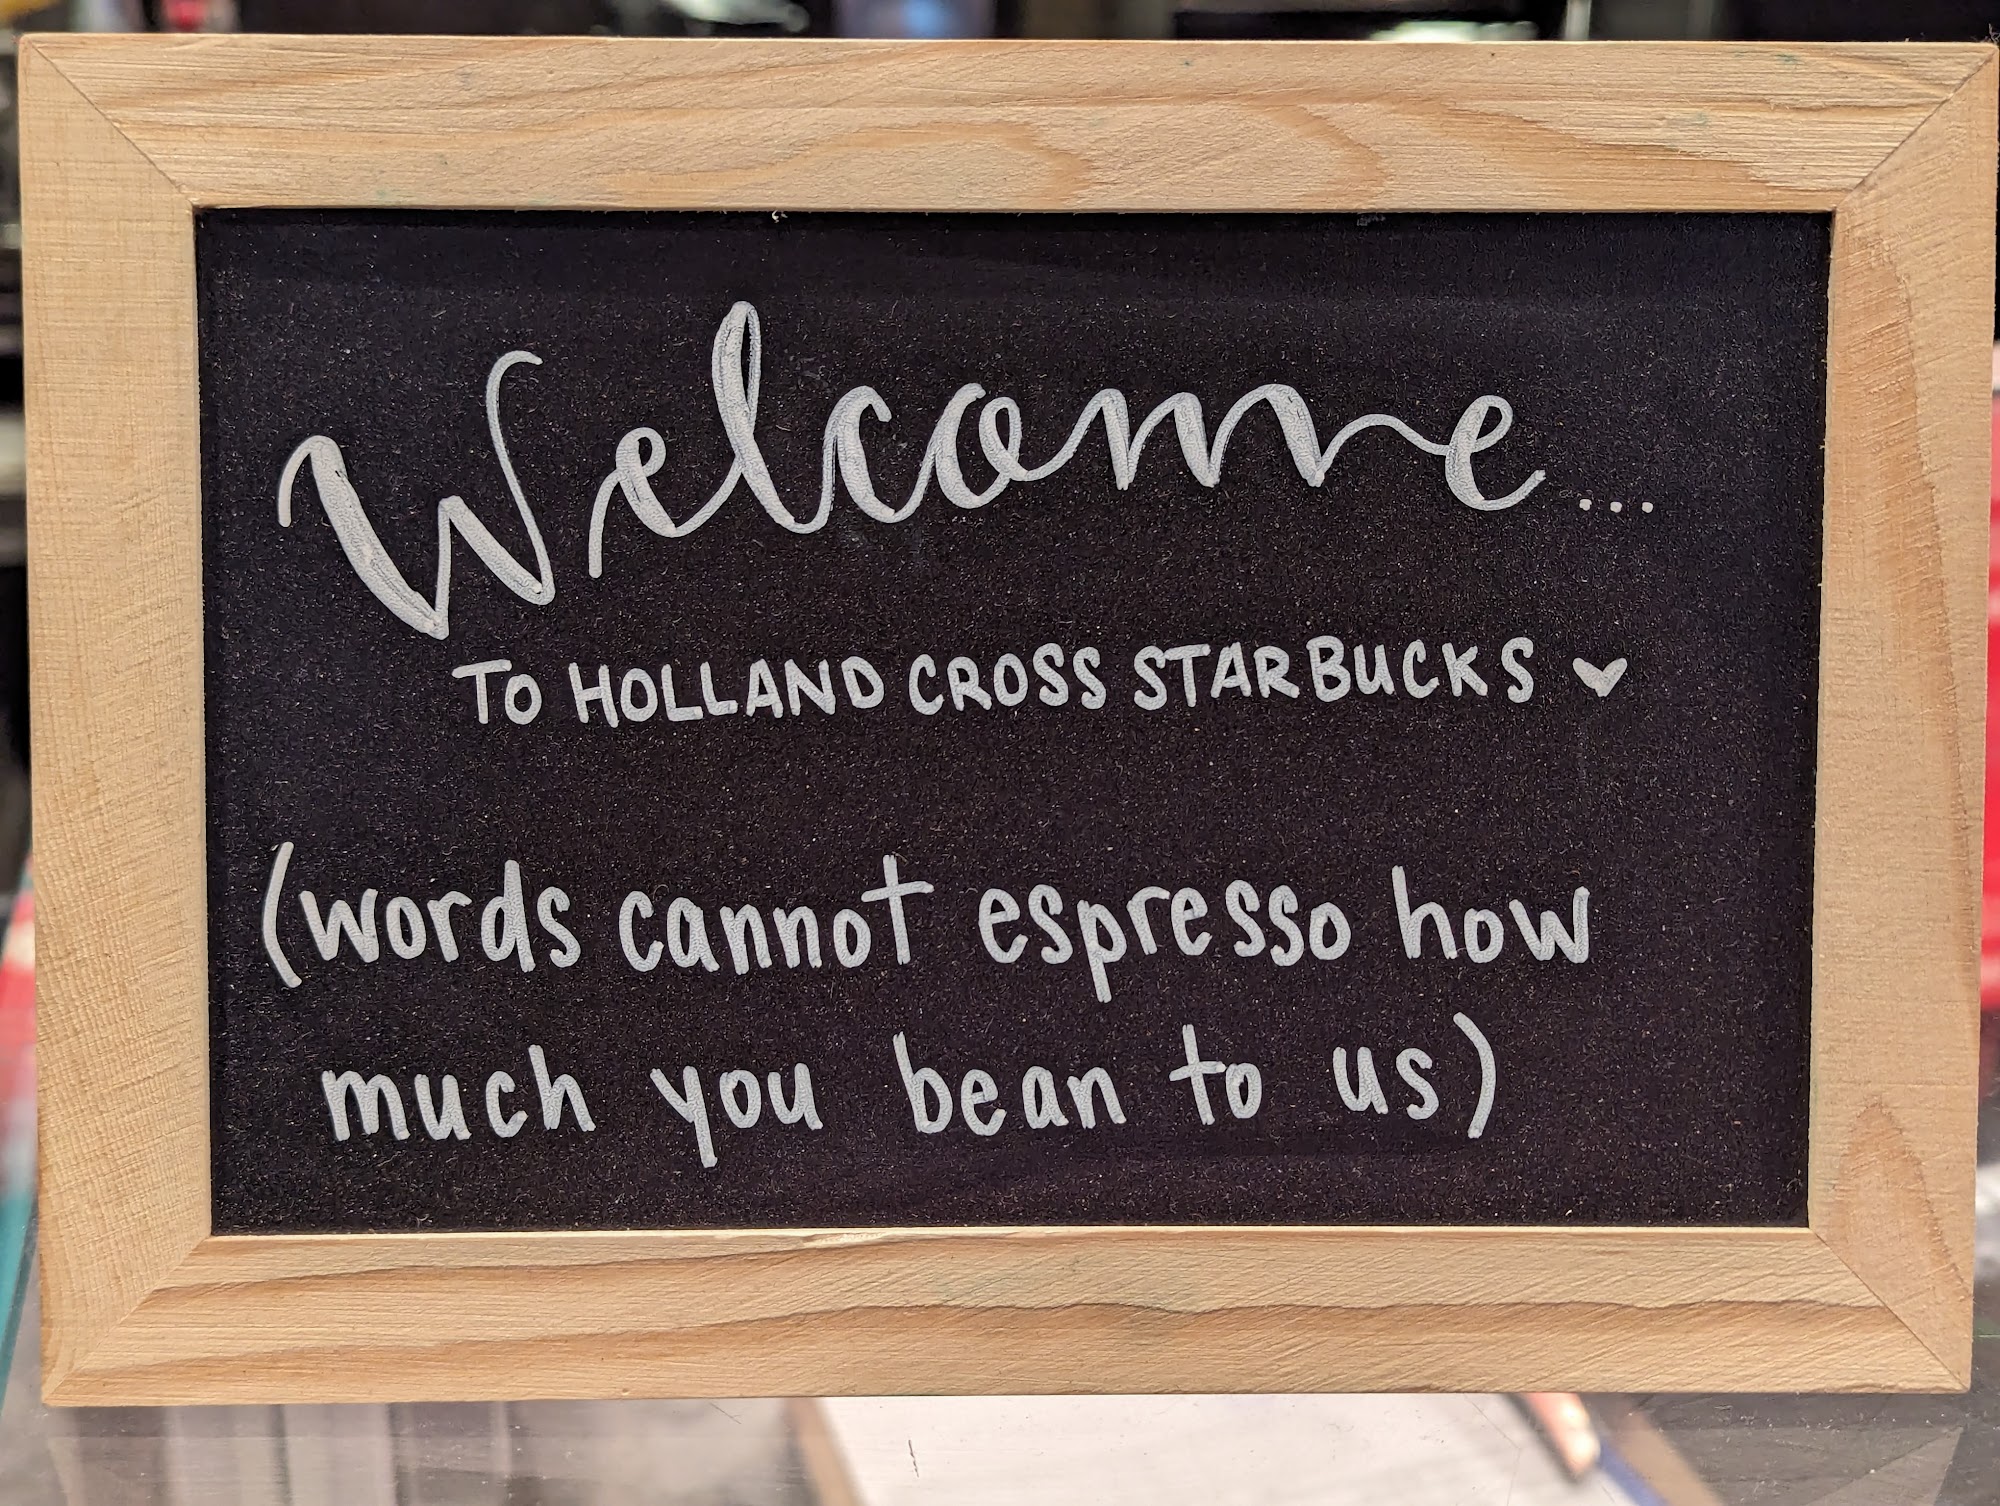 Welcome...
TO HOLLAND CROSS STARBUCKS ♥
(words cannot espresso how
much you bean to us)